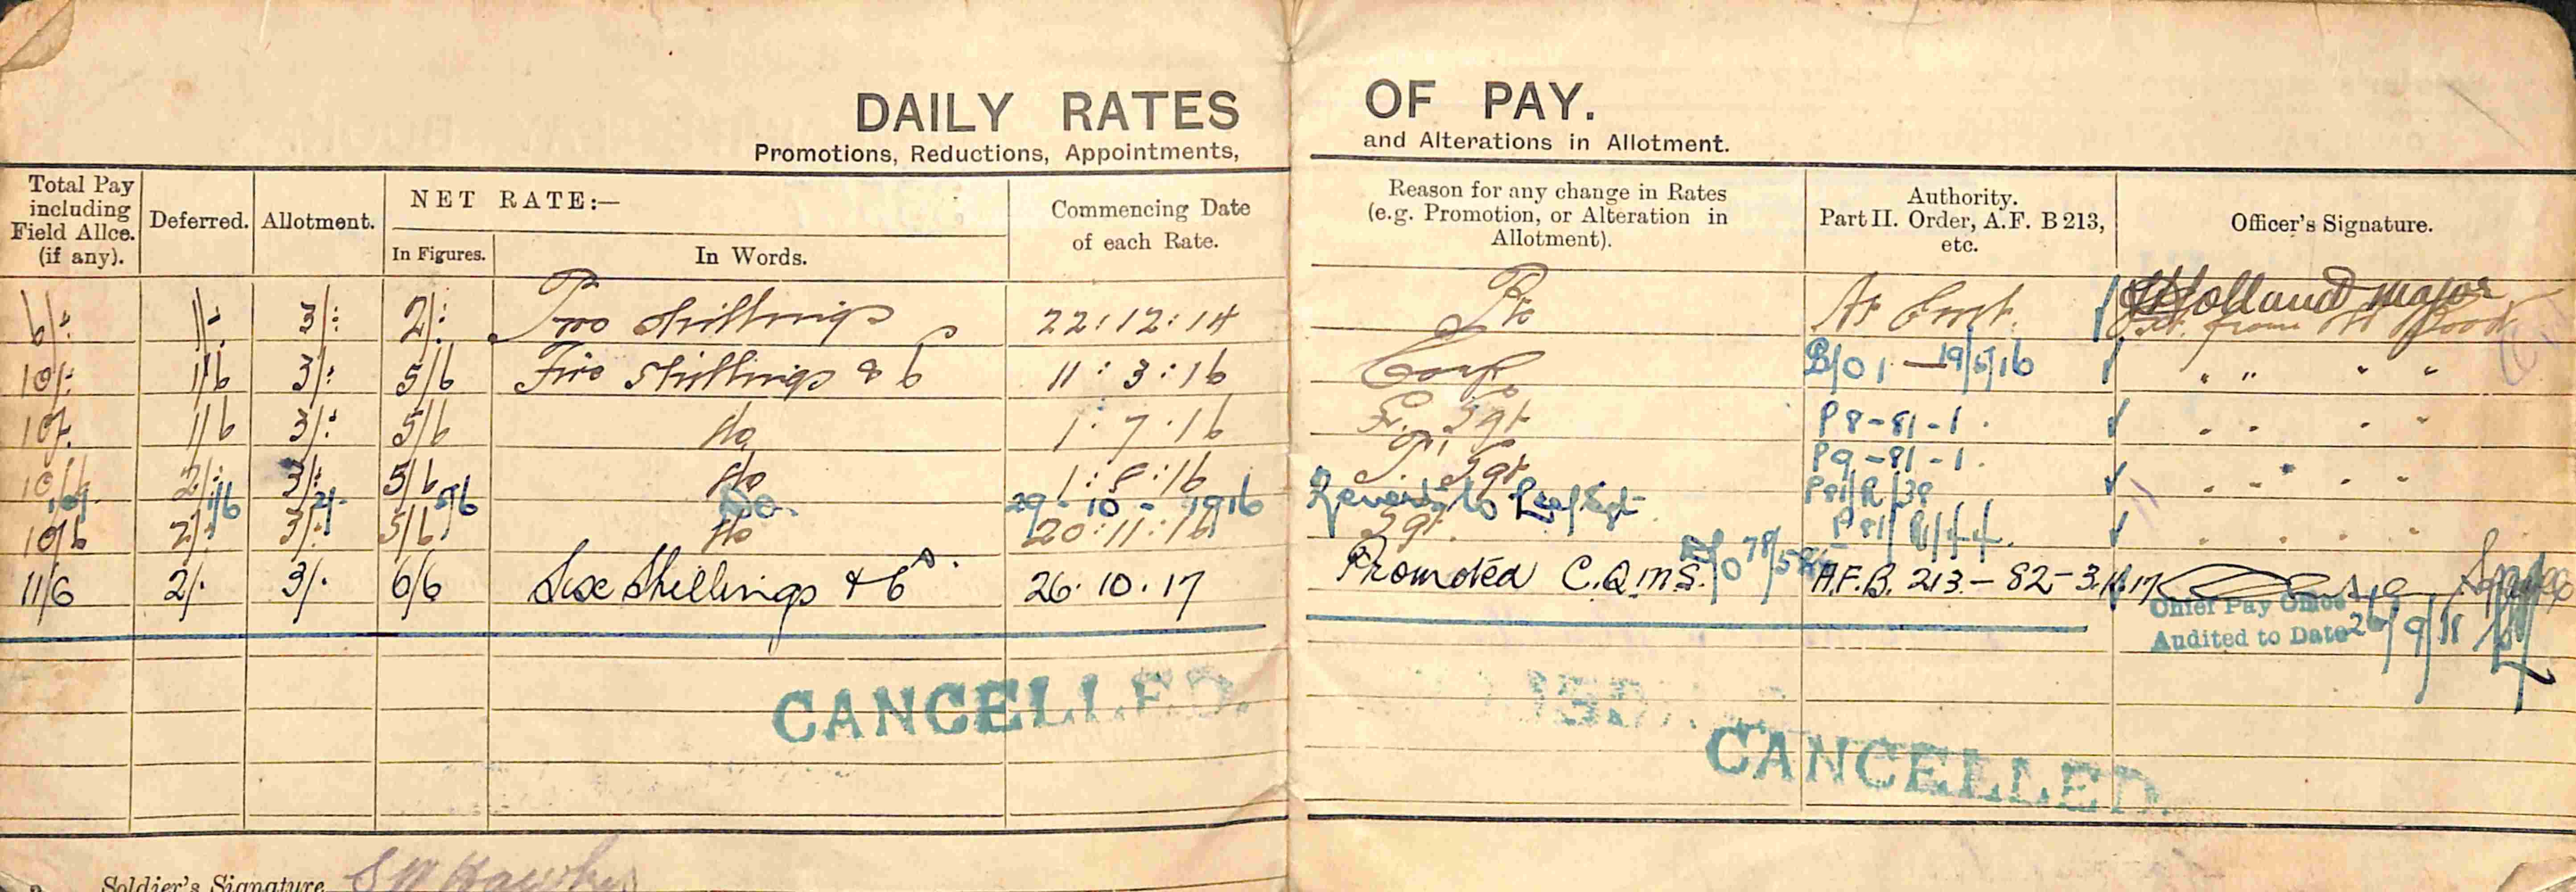 DAILY RATES OF PAY.
Promotions, Reductions, Appointments, and Alterations in Allotment.
Total Pay including Field Allce. (if any). Deferred. Allotment. NET RATE:— In Figures. In Words. Commencing Date of each Rate. Reason for any change in Rates (e.g. Promotion, or Alteration in Allotment). Authority. Part II. Order, A.F. B 213, etc. Officer's Signature.
6/: 1/: 3/: 2/: Two Shillings 22:12:14 Pte At Emt. Holland Major
from
10/: 1/6 3/: 5/6 Five Shillings & 6 11:3:16 Corp. B/01 — 19/5/16 " " " "
10/: 1/6 3/: 5/6 do 1.7.16 Sgt P8-81-1. " " " "
10/6 2/: 3/: 5/6 do 1:8:16 T. Sgt P9-81-1.
10/- 1/6 2/- 5/6 Do. 29-10-1916 Reverts to Sgt P81/R/38 " " " "
10/6 2/: 3/: 5/6 do 20:11:16 Sgt. P81/R/44. " " " "
11/6 2/. 3/. 6/6 Six Shillings & 6d. 26.10.17 Promoted C.Q.M.S. A.F.B. 213-82-3
Chief Pay Office
Audited to Date 26/9/18
CANCELLED.
CANCELLED.
Soldier's Signature